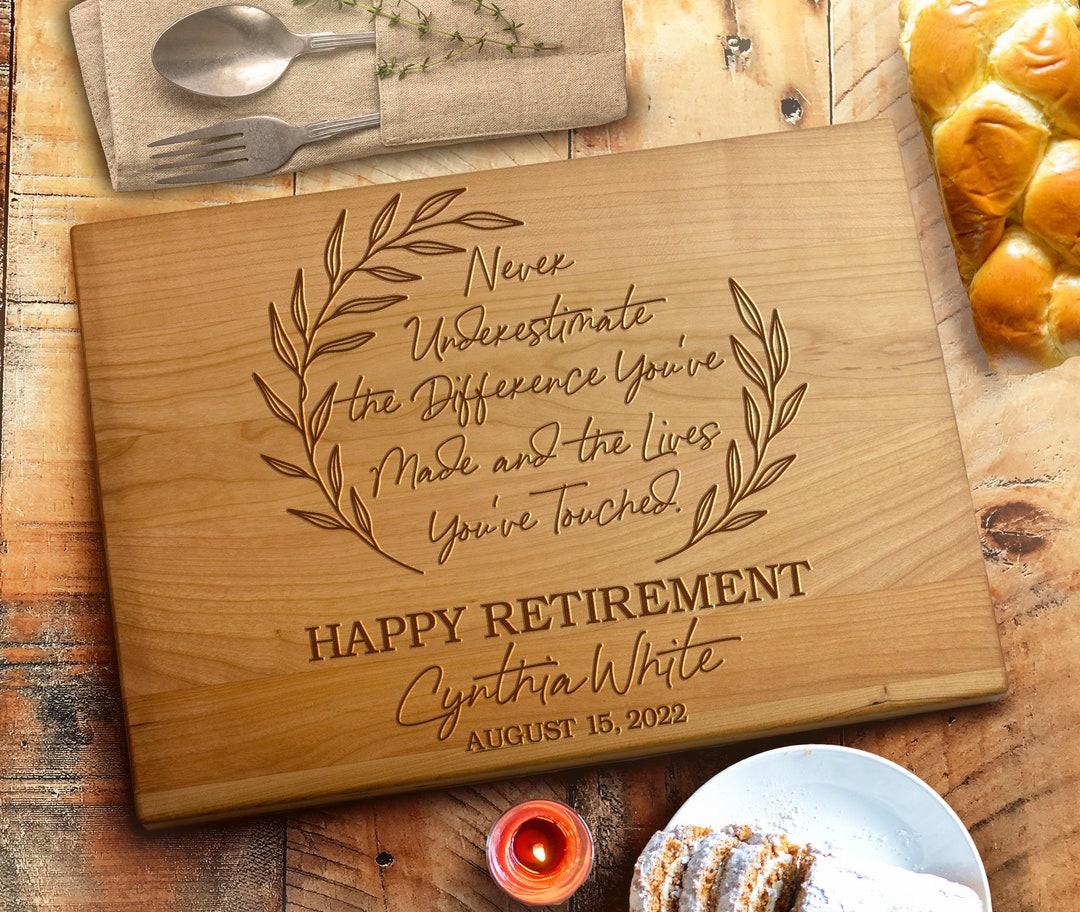 Never
Underestimate
the Difference You've
Made and the Lives
You've Touched.
HAPPY RETIREMENT
Cynthia White
AUGUST 15, 2022